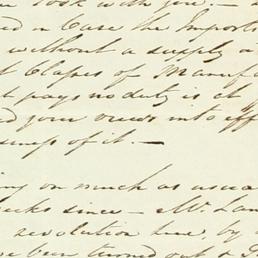 look with you. —
ed in Case the Imports
without a supply a
t Classes of Manufa
t pays no duty is ch
ed your views into eff
siness of it —
ng on much as usua
eeks since — Mr. Lan
revolution line, by a
ve been turned out &